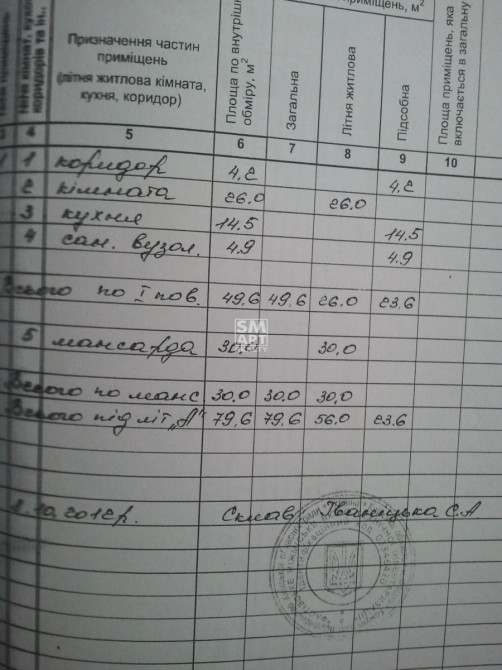 приміщень, м²
Призначення частин
приміщень
(літня житлова кімната,
кухня, коридор)
Площа по внутрішн
обміру, м²
Загальна
Літня житлова
Підсобна
Площа приміщень, яка
включається в загальну
коридорів та ін.,
3 4 5 6 7 8 9 10
1 1 коридор 4,2 4,2
2 кімната 26.0 26.0
3 кухня 14.5 14.5
4 сан. вузол. 4.9 4.9
Всього по I пов. 49,6 49,6 26.0 23.6
SM
ART
5 мансарда 30,0 30,0
Всього по манс 30,0 30,0 30,0
Всього під літ „А" 79,6 79,6 56.0 23.6
Склав Іваніцька С.А